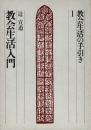 教会生活の手引き
1
辻 宣道
教会生活入門